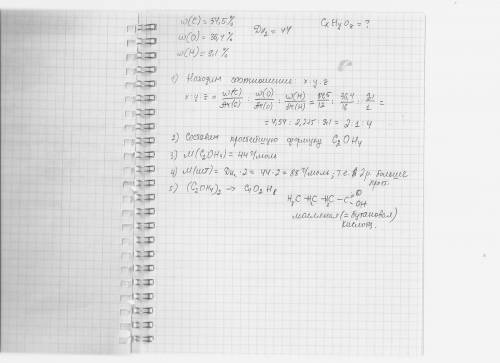 w(C) = 54,5%
w(O) = 36,4%
w(H) = 9,1%
D_H₂ = 44
CxHyOz = ?
1) Находим соотношение: x : y : z
x : y : z = w(C)/Ar(C) : w(O)/Ar(O) : w(H)/Ar(H) = 54,5/12 : 36,4/16 : 9,1/1 =
= 4,54 : 2,275 : 9,1 = 2 : 1 : 4
2) Составим простейшую формулу C₂OH₄
3) M(C₂OH₄) = 44 г/моль
4) M(ист) = D_H₂ · 2 = 44 · 2 = 88 г/моль, т.е. в 2р. больше
прост.
5) (C₂OH₄)₂ → C₄O₂H₈
H₃C - H₂C - H₂C - C =O -OH
масляная (= бутановая)
кислота.